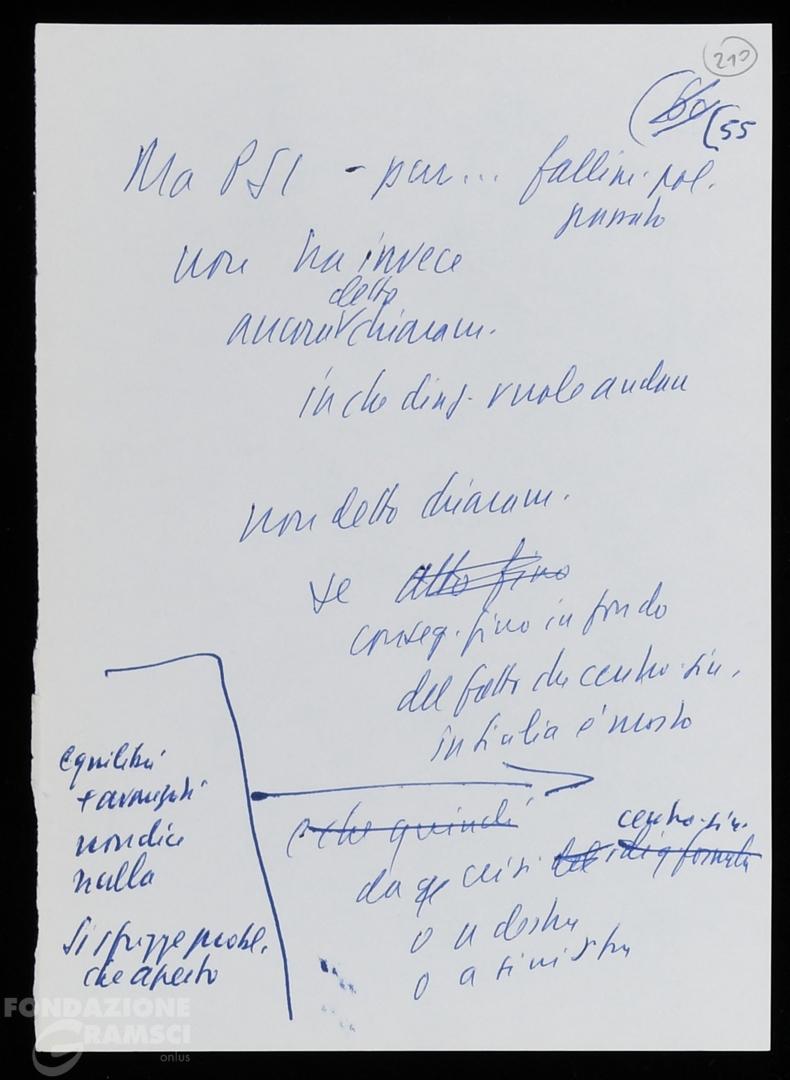 210
55
Ma PSI - pur... fallim. pol.
passato
non ha invece
detto
ancora chiaram.
in che direz. vuole andare
non detto chiaram.
se atto fino
conseg. fino in fondo
del fatto che centro-sin.
in Italia è morto
equilibri
+ avanzati
non dice
nulla
si sfugge probl.
che aperto
che quindi
centro-sin.
da crisi del
o a destra
o a sinistra
FONDAZIONE
GRAMSCI
onlus